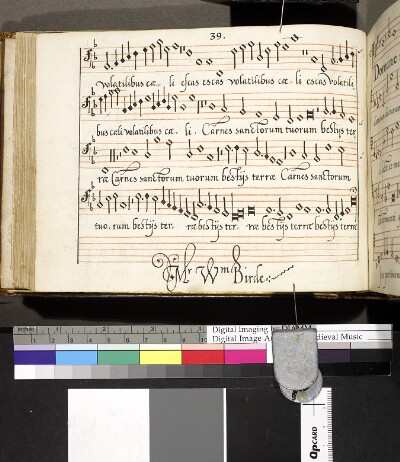 39.
volatilibus cæ. li escas escas volatilibus cæ. li escas volatili
bus cæli volatilibus cæ. li. Carnes sanctorum tuorum bestijs ter
ræ Carnes sanctorum tuorum bestijs terræ Carnes sanctorum
tuo. rum bestijs ter. ræ bestijs ter. ræ bestijs terræ bestijs terræ
Mr Wm Birde
Domine
inches 1 2
Digital Imaging by
Digital Image Medieval Music
QPCARD